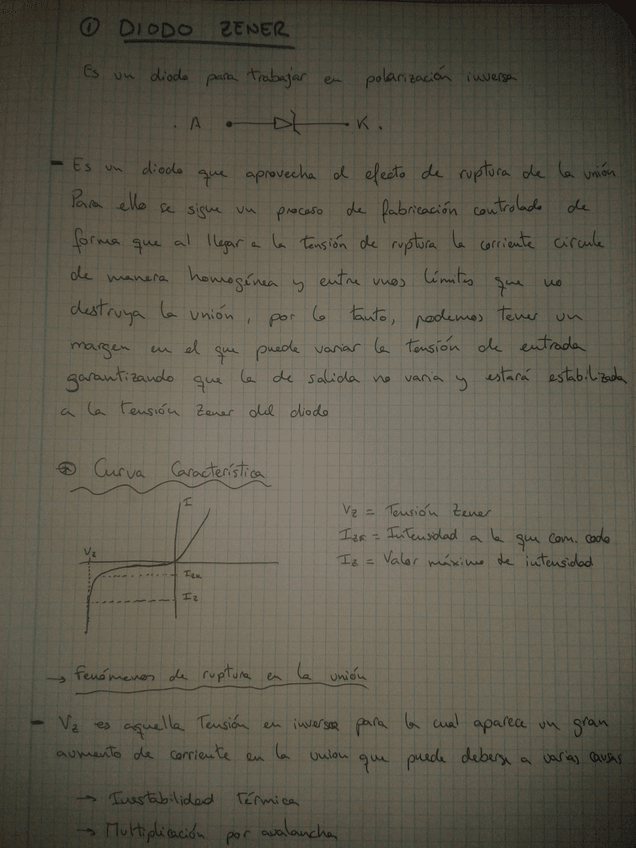 ① DIODO ZENER
Es un diodo para trabajar en polarización inversa
A K
- Es un diodo que aprovecha el efecto de ruptura de la unión
Para ello se sigue un proceso de fabricación controlado de
forma que al llegar a la tensión de ruptura la corriente circule
de manera homogénea y entre unos límites que no
destruya la unión, por lo tanto, podemos tener un
margen en el que puede variar la tensión de entrada
garantizando que la de salida no varia y estará estabilizada
a la tensión Zener del diodo
Curva Característica
I
Vz
Izk
Iz
Vz = Tensión Zener
Izk = Intensidad a la que com. codo
Iz = Valor máximo de intensidad
→ Fenómenos de ruptura en la unión
- Vz es aquella Tensión en inversa para la cual aparece un gran
aumento de corriente en la union que puede deberse a varias causas
→ Inestabilidad Térmica
→ Multiplicación por avalancha